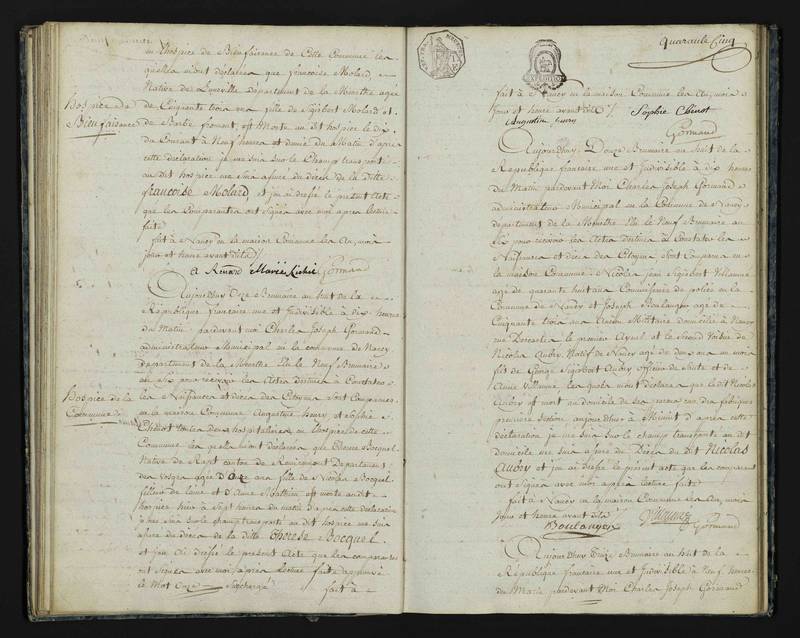 en l'hospice de Bienfaisance de Cette Commune les
quelles m'ont declarées que françoise Molard,
Native de Luneville département de la Meurthe agée
hospice de
Bienfaisance
de Cinquante trois ans fille de Sigisbert Molard et
de Barbe froment, est Morte au dit hospice le dix
du Courant à Neuf heures et demie du Matin d'après
cette declaration je me suis sur le Champ transporté
au dit hospice me suis assuré du décès de la ditte
françoise Molard, et j'en ai dressé le présent acte
que les Comparantes ont signées avec moi après lecture
faite
fait à Nancy en la maison Commune les An, mois
jour et heure avant dits
A Renard Marie Richié Gormand
Aujourdhuy Onze Brumaire an huit de la
République française une et Indivisible à dix heures
du Matin pardevant moi Charles Joseph Gormand
administrateur Municipal en la commune de Nancy
département de la Meurthe Elu le Neuf Brumaire
an Six pour recevoir les Actes destinés à Constater
hospice de la
Commune
les Naissances et deces des Citoyens sont Comparues
en la maison Commune Augustine henry et Sophie
Chenot toutes deux hospitalieres en l'hospice de cette
Commune les quelles m'ont declarées que Therese Bocquel
Native de Rapt canton de Remiremont Departement
des vosges agée d'Onze ans fille de Nicolas Bocquel
fileur de laine et d'Anne Mathieu est morte au dit
hospice hier à Sept heures du matin d'après cette declaration
je me suis sur le champ transporté au dit hospice me suis
assuré du deces de la ditte Therese Bocquel
et j'en ai dressé le présent Acte que les comparantes
ont signées avec moi après lecture faite approuvé
le Mot Onze Surchargé fait à
Quarante Cinq
fait à Nancy en la maison Commune les An, mois
jour et heure avant dits Sophie Chenot
Augustine henry
Gormand
Aujourdhuy Douze Brumaire an huit de la
République française une et Indivisible à dix heures
du Matin pardevant Moi Charles Joseph Gormand
administrateur Municipal en la Commune de Nancy
département de la Meurthe Elu le Neuf Brumaire an
Six pour recevoir les Actes destinés à Constater les
Naissances et deces des Citoyens sont Comparus en
la maison Commune Nicolas jean Sigisbert Villaume
agé de quarante huit ans Commissaire de police en la
Commune de Nancy et Joseph Boulanger agé de
Cinquante trois ans Ancien Militaire domicilié à Nancy
rue Descartes le premier Ayeul et le Second Voisin de
Nicolas Aubry Natif de Nancy agé de deux ans un mois
fils de George Sigisbert Aubry officier de Suite et de
Anne Villaume les quels m'ont declaré que le dit Nicolas
Aubry est mort au domicile de ses parens rue des fabriques
premiere Section, aujourdhuy à Minuit d'après cette
déclaration je me suis sur le champ transporté au dit
domicile me suis assuré du Décès du dit Nicolas
Aubry et j'en ai dressé le présent acte que les comparants
ont Signés avec moi après lecture faite
fait à Nancy en la maison Commune les An, mois
jour et heure avant dits
Boulanger Villaume Gormand
Aujourdhuy Treize Brumaire an huit de la
République française une et Indivisible à Neuf heures
du Matin pardevant Moi Charles Joseph Gormand